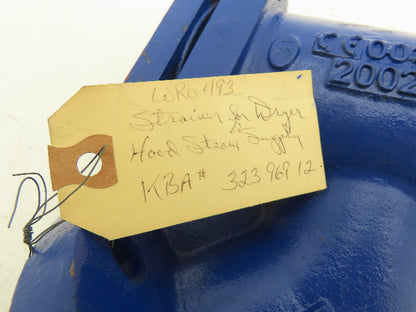 WRO493
Strainer for Dryer
Hood Steam Supply
KBA# 323 969 12
2002